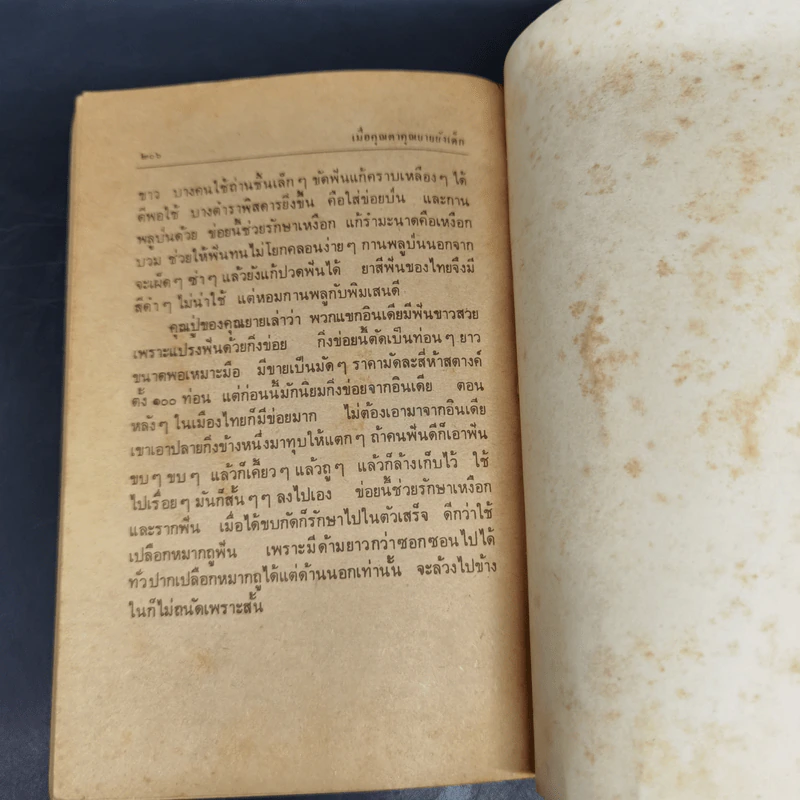 เมื่อคุณตาคุณยายยังเด็ก
๒๐๖
ขาว บางคนใช้ถ่านชิ้นเล็กๆ ขัดฟันแก้คราบเหลืองๆ ได้
ดีพอใช้ บางตำราพิสดารยิ่งขึ้น คือใส่ข่อยป่น และกาน
พลูป่นด้วย ข่อยนี้ช่วยรักษาเหงือก แก้รำมะนาดคือเหงือก
บวม ช่วยให้ฟันทนไม่โยกคลอนง่ายๆ กานพลูป่นนอกจาก
จะเผ็ดๆ ซ่าๆ แล้วยังแก้ปวดฟันได้ ยาสีฟันของไทยจึงมี
สีดำๆ ไม่น่าใช้ แต่หอมกานพลูกับพิมเสนดี
คุณปู่ของคุณยายเล่าว่า พวกแขกอินเดียมีฟันขาวสวย
เพราะแปรงฟันด้วยกิ่งข่อย กิ่งข่อยนี้ตัดเป็นท่อนๆ ยาว
ขนาดพอเหมาะมือ มีขายเป็นมัดๆ ราคามัดละสี่ห้าสตางค์
ตั้ง ๑๐๐ ท่อน แต่ก่อนนี้มักนิยมกิ่งข่อยจากอินเดีย ตอน
หลังๆ ในเมืองไทยก็มีข่อยมาก ไม่ต้องเอามาจากอินเดีย
เขาเอาปลายกิ่งข้างหนึ่งมาทุบให้แตกๆ ถ้าคนฟันดีก็เอาฟัน
ขบๆ ขบๆ แล้วก็เคี้ยวๆ แล้วถูๆ แล้วก็ล้างเก็บไว้ ใช้
ไปเรื่อยๆ มันก็สั้นๆๆ ลงไปเอง ข่อยนี้ช่วยรักษาเหงือก
และรากฟัน เมื่อได้ขบกัดก็รักษาไปในตัวเสร็จ ดีกว่าใช้
เปลือกหมากถูฟัน เพราะมีด้ามยาวกว่าซอกซอนไปได้
ทั่วปากเปลือกหมากถูได้แต่ด้านนอกเท่านั้น จะล้วงไปข้าง
ในก็ไม่ถนัดเพราะสั้น